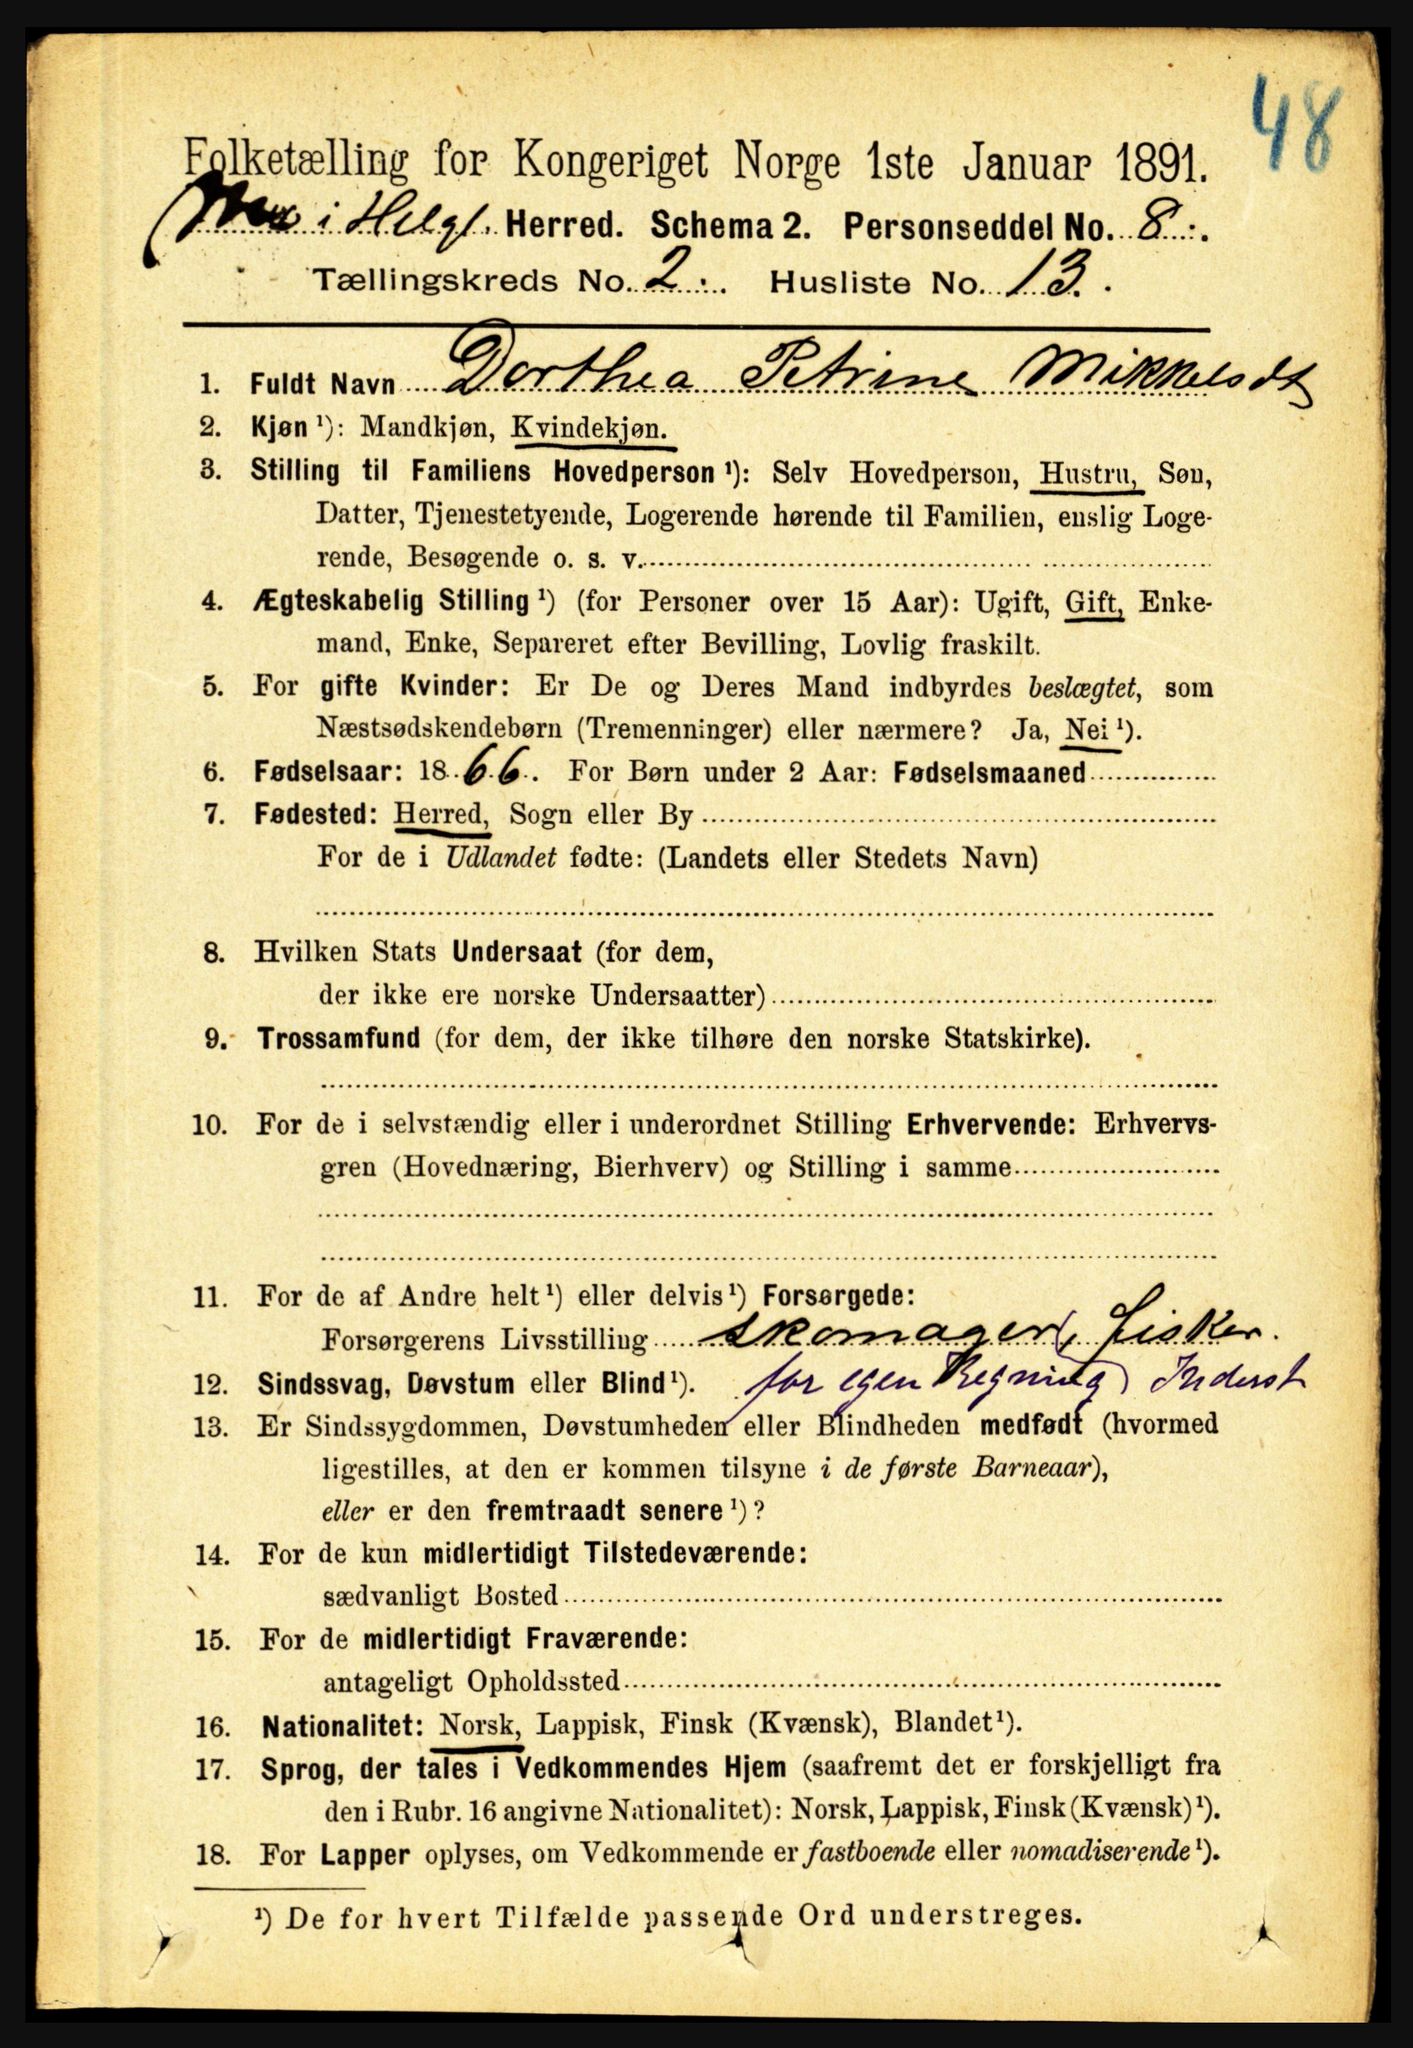 48
Folketælling for Kongeriget Norge 1ste Januar 1891.
i Helgl. Herred. Schema 2. Personseddel No. 8.
Tællingskreds No. 2. Husliste No. 13.
1. Fuldt Navn Dorthea Petrine Mikkelsdt
2. Kjøn ¹): Mandkjøn, Kvindekjøn.
3. Stilling til Familiens Hovedperson ¹): Selv Hovedperson, Hustru, Søn,
Datter, Tjenestetyende, Logerende hørende til Familien, enslig Loge-
rende, Besøgende o. s. v.
4. Ægteskabelig Stilling ¹) (for Personer over 15 Aar): Ugift, Gift, Enke-
mand, Enke, Separeret efter Bevilling, Lovlig fraskilt.
5. For gifte Kvinder: Er De og Deres Mand indbyrdes beslægtet, som
Næstsødskendebørn (Tremenninger) eller nærmere? Ja, Nei ¹).
6. Fødselsaar: 1866. For Børn under 2 Aar: Fødselsmaaned
7. Fødested: Herred, Sogn eller By
For de i Udlandet fødte: (Landets eller Stedets Navn)
8. Hvilken Stats Undersaat (for dem,
der ikke ere norske Undersaatter)
9. Trossamfund (for dem, der ikke tilhøre den norske Statskirke).
10. For de i selvstændig eller i underordnet Stilling Erhvervende: Erhvervs-
gren (Hovednæring, Bierhverv) og Stilling i samme
11. For de af Andre helt ¹) eller delvis ¹) Forsørgede:
Forsørgerens Livsstilling skomager, fisker.
12. Sindssvag, Døvstum eller Blind ¹). for egen Regning) Inderst
13. Er Sindssygdommen, Døvstumheden eller Blindheden medfødt (hvormed
ligestilles, at den er kommen tilsyne i de første Barneaar),
eller er den fremtraadt senere ¹)?
14. For de kun midlertidigt Tilstedeværende:
sædvanligt Bosted
15. For de midlertidigt Fraværende:
antageligt Opholdssted
16. Nationalitet: Norsk, Lappisk, Finsk (Kvænsk), Blandet ¹).
17. Sprog, der tales i Vedkommendes Hjem (saafremt det er forskjelligt fra
den i Rubr. 16 angivne Nationalitet): Norsk, Lappisk, Finsk (Kvænsk) ¹).
18. For Lapper oplyses, om Vedkommende er fastboende eller nomadiserende ¹).
¹) De for hvert Tilfælde passende Ord understreges.